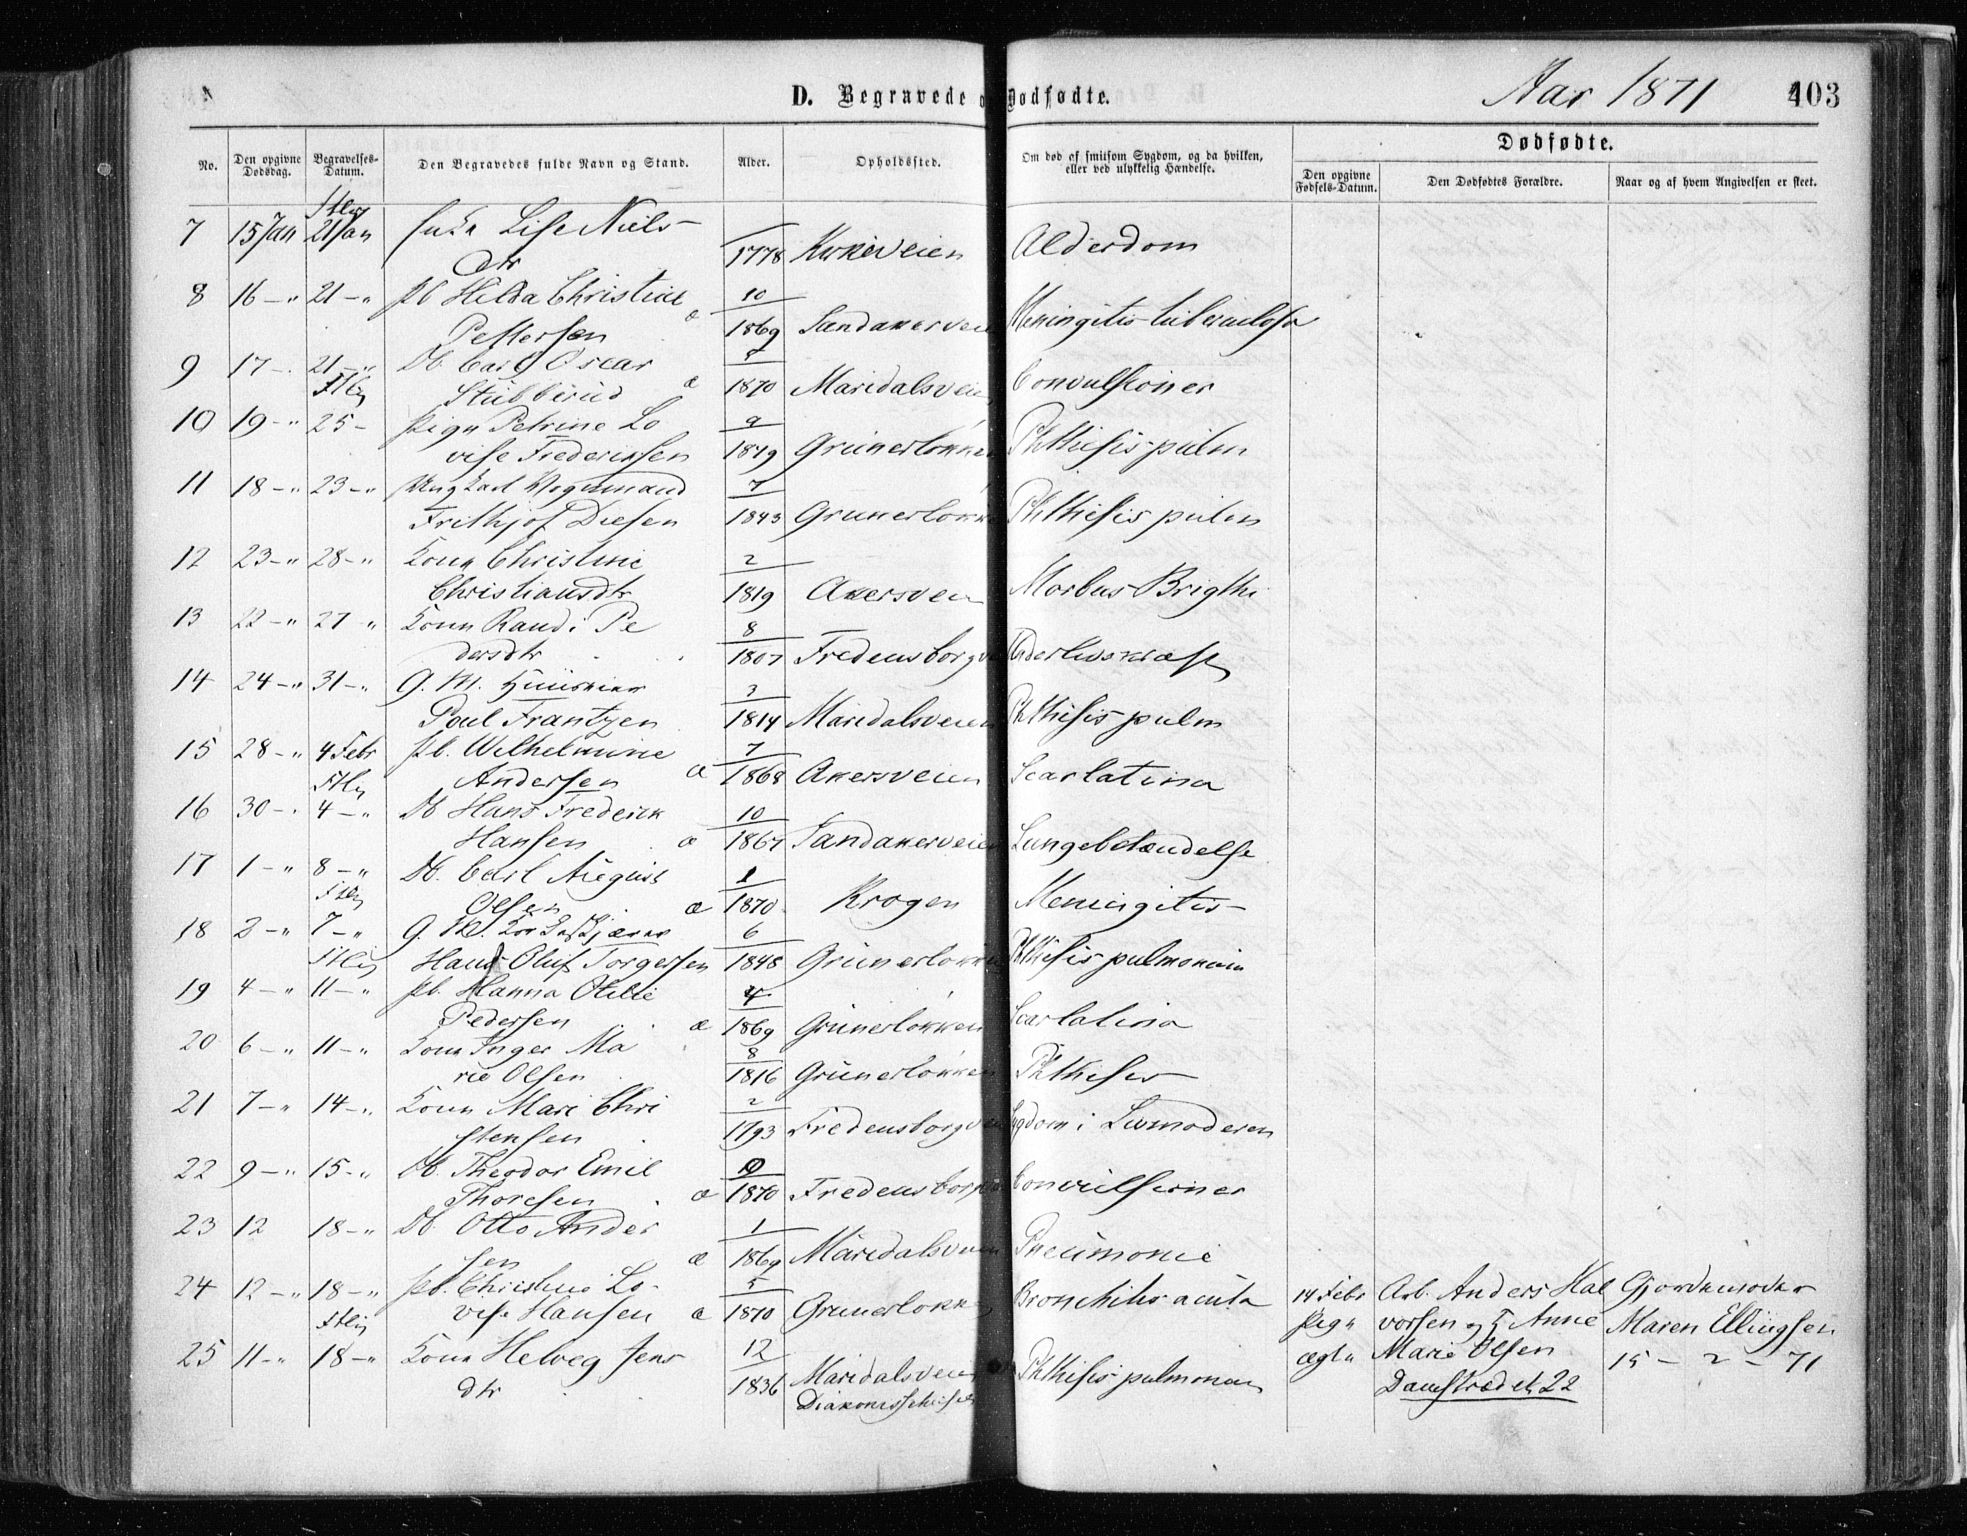 D. Begravede o Dødfødte.
Aar 1871
403
No.
Den opgivne Dødsdag.
Begravelses-Datum.
Den Begravedes fulde Navn og Stand.
Alder.
Opholdssted.
Om død af smitsom Sygdom, og da hvilken, eller ved ulykkelig Hændelse.
Dødfødte.
Den opgivne Fødsels-Datum.
Den Dødfødtes Forældre.
Naar og af hvem Angivelsen er skeet.
7 15 Jan 21 Jan Lise Niels-
dtr 1778 Kirkeveien Alderdom
8 16 -" 21 -" pb Hilda Christine 10
Pettersen æ 1869 Sandakerveien Meningitis tuberculosa
9 17 - 21 -" Db Carl Oscar 8
Stubberud æ 1870 Maridalsveien Convulsioner
10 19 -" 25 - pige Petrine Lo 9
vise Frederiksen 1849 Grünerløkken Phthisis pulm
11 18 -" 23 -" Ungkarl Vognmand 7
Frithjof Diesen 1843 Grunerløkke Phthisis pulm
12 23 -" 28 -" Kone Christine 2
Christiansdtr 1819 Akersveien Morbus Brigthi
13 22 -" 27 " Kone Randi Pe 8
dersdtr 1807 Fredensborgve Underlivskræft
14 24 -" 31 -" G. M. Huuseier 3
Poul Frantzen 1814 Maridalsveien Phthisis pulm
15 28 -" 4 Febr pb. Wilhelmine 7
Andersen æ 1868 Akersveien Scarlatina
16 30 -" 4 -" Db Hans Frederik 10
Hansen æ 1867 Sandakerveien Lungebetændelse
17 1 -" 8 -" Db. Carl August 1
Olsen æ 1870 Krogen Meningitis
18 2 -" 7 -" G. M. 6
Hans Oluf Torgersen 1848 Grünerløkke Phthisis pulmonum
19 4 -" 11 -" pb. Hanna Otilie 4
Pedersen æ 1869 Grünerløkken Scarlatina
20 6 -" 11 -" Kone Inger Ma 8
rie Olsen 1816 Grünerløkken Phthisis
21 7 -" 14 -" Kone Mari Chri 2
stensen 1793 Fredensborgvei Sygdom i Livmoderen
22 9 -" 15 -" Db. Theodor Emil
Thoresen æ 1870 Fredensborg Convulsioner
23 12 18 -" Db. Otto Ander 1
sen æ 1869 Maridalsveien Pneumonie
24 12 -" 18 -" pb. Christine Lo- 5
vise Hansen æ 1870 Grunerløkke Bronchitis acuta
25 11 -" 18 -" Kone Helveg Jens 12
dtr 1836 Maridalsveien Phthisis pulmonum
14 Febr Arb. Anders Hal Gjordemoder
Pige vorsen og Anne Maren Ellingsen
ægte Marie Olsen 15 - 2 - 71
Damstrædet 22